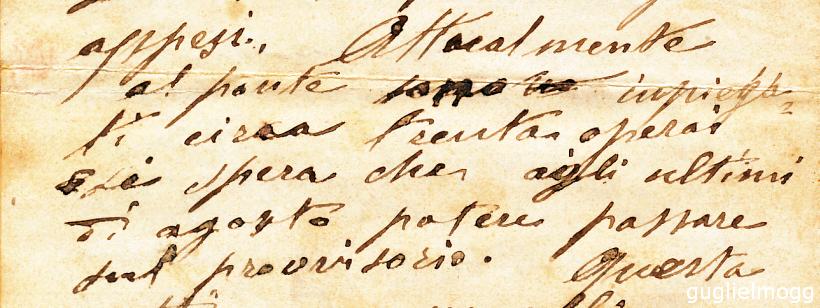 appesi. Attualmente
al ponte sono impiega=
ti circa trenta operai
e si spera che agli ultimi
di agosto potere passare
sul provvisorio. Questa
guglielmogg